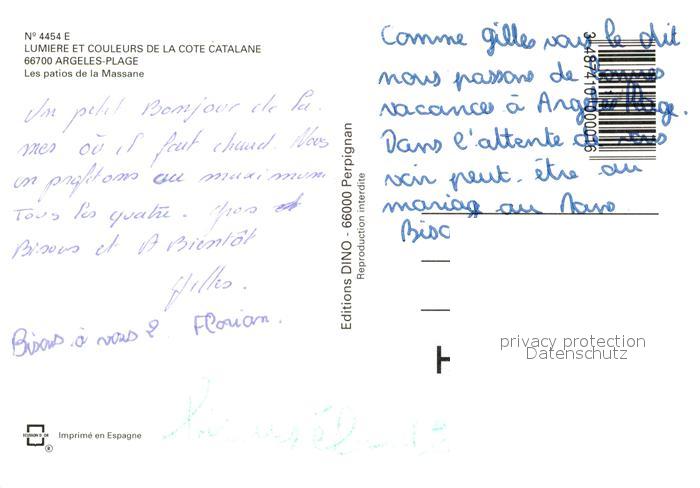 Nº 4454 E
LUMIERE ET COULEURS DE LA COTE CATALANE
66700 ARGELES-PLAGE
Les patios de la Massane
Un petit Bonjour de la
mer où il fait chaud. Nous
en profitons au maximum
Tous les quatre. Gros
Bisous et A Bientôt
Gilles.
Bisous à vous 2 Florian.
Imprimé en Espagne
Editions DINO - 66000 Perpignan
Reproduction interdite
Comme gilles vous le dit
nous passons de bonnes
vacances à Argeles Plage.
Dans l'attente de vous
voir peut-être au
mariage au
Biso
H
privacy protection
Datenschutz